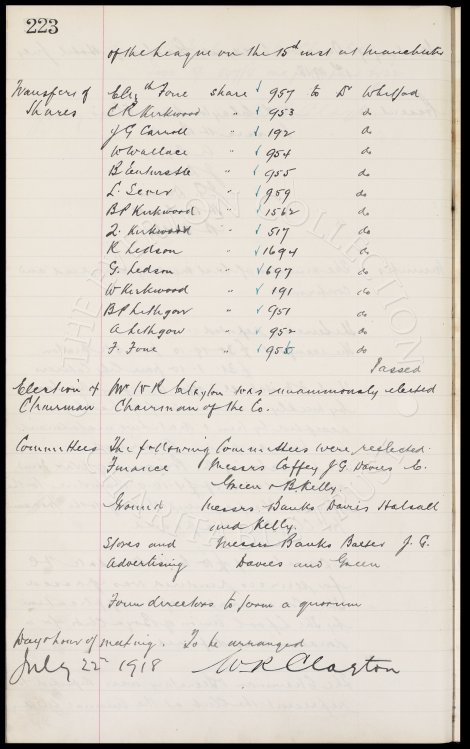 223
of the League on the 15th inst at Manchester
Transfers of Shares
Elizth Fone share 957 to Dr Whitford
C R Kirkwood " 953 do
J G Carroll " 192 do
W Wallace " 954 do
B Entwistle " 955 do
L. Sever " 959 do
B P Kirkwood " 1562 do
J. Kirkwood " 517 do
R Ledson " 1694 do
G. Ledson " 697 do
W Kirkwood " 191 do
B P Lithgow " 951 do
A Lithgow " 952 do
F. Fone " 956 do
Passed
Election of Chairman
Mr W R Clayton was unanimously elected
Chairman of the Co.
Committees The following Committees were reelected.
Finance Messrs Coffey J. G. Davies
Green & B Kelly.
Ground Messrs Banks Davies Halsall
and Kelly.
Stores and Messrs Banks Baxter J. G.
Advertising Davies and Green
Four directors to form a quorum
Day & hour of meeting. To be arranged
July 22nd 1918 W R Clayton